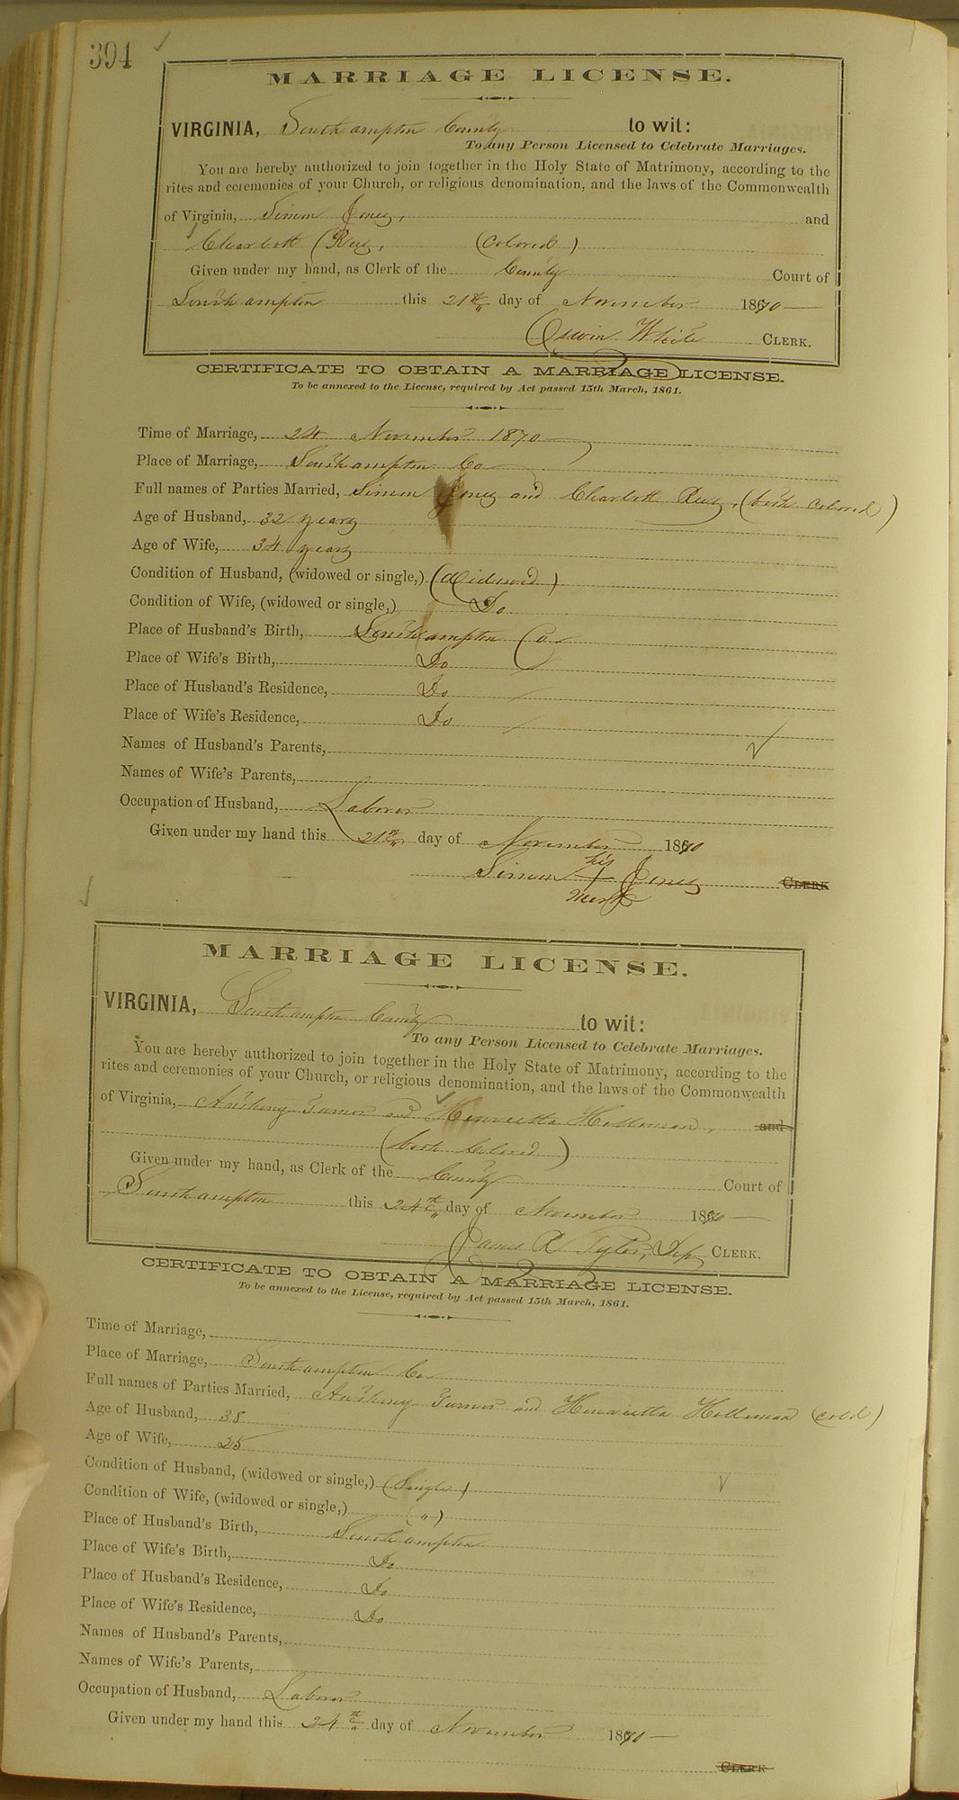 394
MARRIAGE LICENSE.
VIRGINIA, Southampton County to wit:
To any Person Licensed to Celebrate Marriages.
You are hereby authorized to join together in the Holy State of Matrimony, according to the
rites and ceremonies of your Church, or religious denomination, and the laws of the Commonwealth
of Virginia, Simon Jones, and
Charlott (Colored)
Given under my hand, as Clerk of the County Court of
Southampton this 21st day of November 1870
Edwin White CLERK.
CERTIFICATE TO OBTAIN A MARRIAGE LICENSE.
To be annexed to the License, required by Act passed 15th March, 1861.
Time of Marriage, 24 November 1870
Place of Marriage, Southampton Co
Full names of Parties Married, Simon Jones and Charlott (both Colored)
Age of Husband, 32 years
Age of Wife, 34 years
Condition of Husband, (widowed or single,) (Widowed)
Condition of Wife, (widowed or single,) Do.
Place of Husband's Birth, Southampton Co
Place of Wife's Birth, Do
Place of Husband's Residence, Do
Place of Wife's Residence, Do
Names of Husband's Parents,
Names of Wife's Parents,
Occupation of Husband, Laborer
Given under my hand this 21st day of November 1870
his
Simon + Jones CLERK
mark
MARRIAGE LICENSE.
VIRGINIA, Southampton County to wit:
To any Person Licensed to Celebrate Marriages.
You are hereby authorized to join together in the Holy State of Matrimony, according to the
rites and ceremonies of your Church, or religious denomination, and the laws of the Commonwealth
of Virginia, Anthony Turner and Henrietta Holloman, and
(both Colored)
Given under my hand, as Clerk of the County Court of
Southampton this 24th day of November 1870
James R Tyler, Dep CLERK.
CERTIFICATE TO OBTAIN A MARRIAGE LICENSE.
To be annexed to the License, required by Act passed 15th March, 1861.
Time of Marriage,
Place of Marriage, Southampton Co
Full names of Parties Married, Anthony Turner and Henrietta Holloman (cold)
Age of Husband, 38
Age of Wife, 25
Condition of Husband, (widowed or single,) (Single)
Condition of Wife, (widowed or single,) (")
Place of Husband's Birth, Southampton
Place of Wife's Birth, Do
Place of Husband's Residence, Do
Place of Wife's Residence, Do
Names of Husband's Parents,
Names of Wife's Parents,
Occupation of Husband, Laborer
Given under my hand this 24th day of November 1870
CLERK